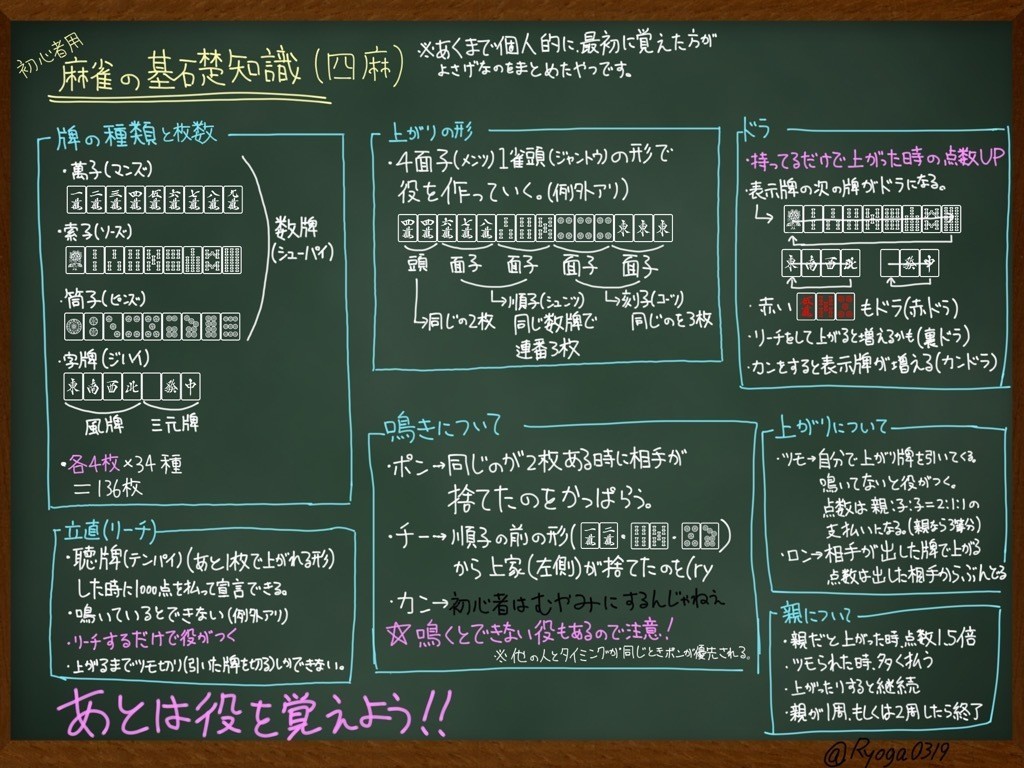 初心者用
麻雀の基礎知識(四麻)
※あくまで個人的に、最初に覚えた方が
よさげなのをまとめたやつです。
牌の種類と枚数
・萬子(マンズ)
・索子(ソーズ)
・筒子(ピンズ)
数牌
(シューパイ)
・字牌(ジハイ)
東 南 西 北 發 中
風牌 三元牌
・各4枚×34種
=136枚
上がりの形
・4面子(メンツ)1雀頭(ジャントウ)の形で
役を作っていく。(例外アリ)
頭 面子 面子 面子 面子
→同じの2枚
→順子(シュンツ)
同じ数牌で
連番3枚
→刻子(コーツ)
同じのを3枚
ドラ
・持ってるだけで上がった時の点数UP
・表示牌の次の牌がドラになる。
東 南 西 北 發 中
・赤い もドラ(赤ドラ)
・リーチをして上がると増えるかも(裏ドラ)
・カンをすると表示牌が増える(カンドラ)
立直(リーチ)
・聴牌(テンパイ)(あと1枚で上がれる形)
した時に1000点を払って宣言できる。
・鳴いているとできない(例外アリ)
・リーチするだけで役がつく
・上がるまでツモ切り(引いた牌を切る)しかできない。
鳴きについて
・ポン→同じのが2枚ある時に相手が
捨てたのをかっぱらう。
・チー→順子の前の形( ・ ・ )
から上家(左側)が捨てたのを(ry
・カン→初心者はむやみにするんじゃねぇ
☆鳴くとできない役もあるので注意!
※他の人とタイミングが同じときポンが優先される。
上がりについて
・ツモ→自分で上がり牌を引いてくる。
鳴いてないと役がつく。
点数は親:子:子=2:1:1の
支払いになる。(親なら3等分)
・ロン→相手が出した牌で上がる
点数は出した相手からぶんどる
親について
・親だと上がった時、点数1.5倍
・ツモられた時、多く払う
・上がったりすると継続
・親が1周、もしくは2周したら終了
あとは役を覚えよう!!
@Ryoga0319